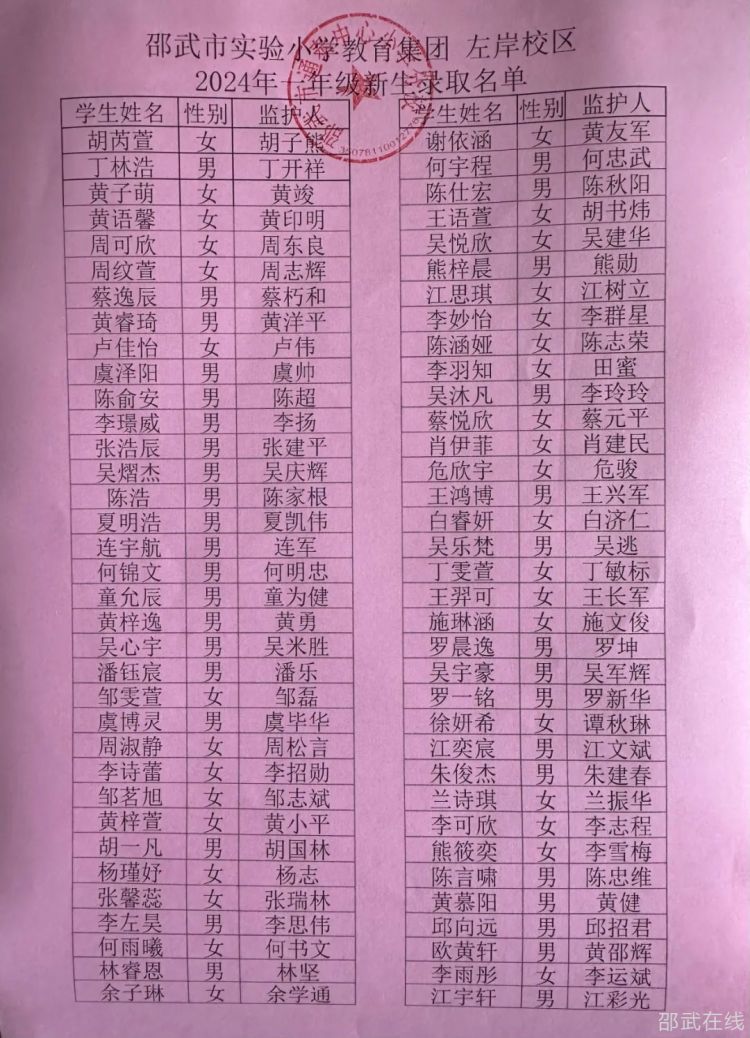 邵武市实验小学教育集团 左岸校区
2024年一年级新生录取名单
学生姓名 性别 监护人
胡芮萱 女 胡子熊
丁林浩 男 丁开祥
黄子萌 女 黄竣
黄语馨 女 黄印明
周可欣 女 周东良
周纹萱 女 周志辉
蔡逸辰 男 蔡朽和
黄睿琦 男 黄洋平
卢佳怡 女 卢伟
虞泽阳 男 虞帅
陈俞安 男 陈超
李璟威 男 李扬
张浩辰 男 张建平
吴熠杰 男 吴庆辉
陈浩 男 陈家根
夏明浩 男 夏凯伟
连宇航 男 连军
何锦文 男 何明忠
童允辰 男 童为健
黄梓逸 男 黄勇
吴心宇 男 吴米胜
潘钰宸 男 潘乐
邹雯萱 女 邹磊
虞博灵 男 虞毕华
周淑静 女 周松言
李诗蕾 女 李招勋
邹茗旭 女 邹志斌
黄梓萱 女 黄小平
胡一凡 男 胡国林
杨瑾妤 女 杨志
张馨蕊 女 张瑞林
李左昊 男 李思伟
何雨曦 女 何书文
林睿恩 男 林坚
余子琳 女 余学通
学生姓名 性别 监护人
谢依涵 女 黄友军
何宇程 男 何忠武
陈仕宏 男 陈秋阳
王语萱 女 胡书炜
吴悦欣 女 吴建华
熊梓晨 男 熊勋
江思琪 女 江树立
李妙怡 女 李群星
陈涵娅 女 陈志荣
李羽知 女 田蜜
吴沐凡 男 李玲玲
蔡悦欣 女 蔡元平
肖伊菲 女 肖建民
危欣宇 女 危骏
王鸿博 男 王兴军
白睿妍 女 白济仁
吴乐梵 男 吴逃
丁雯萱 女 丁敏标
王羿可 女 王长军
施琳涵 女 施文俊
罗晨逸 男 罗坤
吴宇豪 男 吴军辉
罗一铭 男 罗新华
徐妍希 女 谭秋琳
江奕宸 男 江文斌
朱俊杰 男 朱建春
兰诗琪 女 兰振华
李可欣 女 李志程
熊筱奕 女 李雪梅
陈言啸 男 陈忠维
黄慕阳 男 黄健
邱向远 男 邱招君
欧黄轩 男 黄邵辉
李雨彤 女 李运斌
江宇轩 男 江彩光
邵武在线